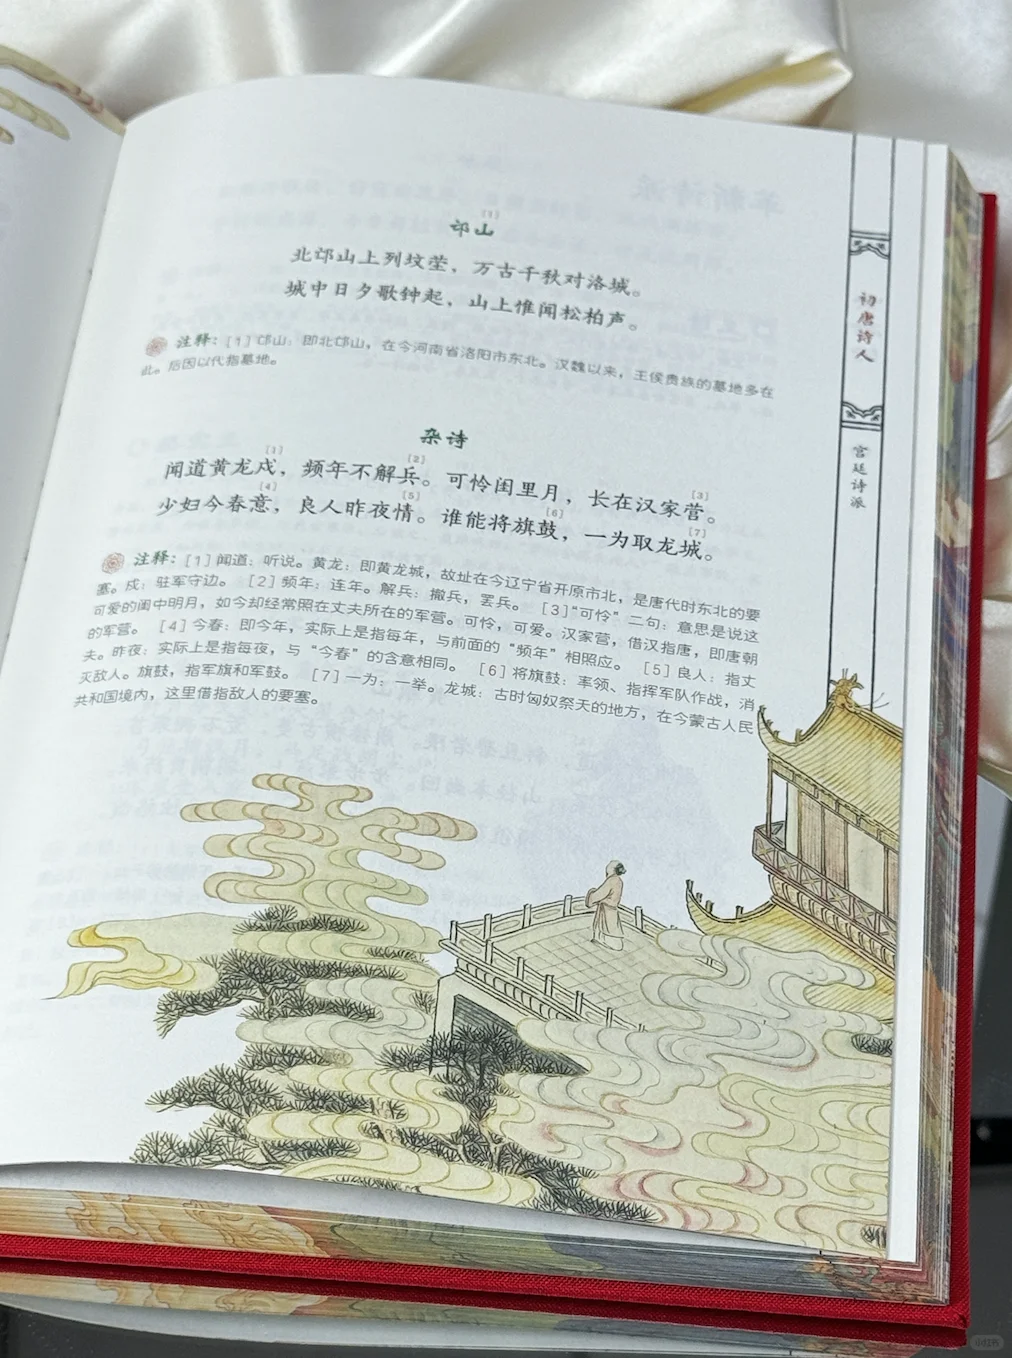 [1]
邙山
北邙山上列坟茔，万古千秋对洛城。
城中日夕歌钟起，山上惟闻松柏声。
注释：[1]邙山：即北邙山，在今河南省洛阳市东北。汉魏以来，王侯贵族的墓地多在
此。后因以代指墓地。
杂诗
[1] [2]
闻道黄龙戍，频年不解兵。可怜闺里月，长在汉家营。[3]
[4] [5] [6] [7]
少妇今春意，良人昨夜情。谁能将旗鼓，一为取龙城。
注释：[1]闻道：听说。黄龙：即黄龙城，故址在今辽宁省开原市北，是唐代时东北的要
塞。戍：驻军守边。 [2]频年：连年。解兵：撤兵，罢兵。 [3]“可怜”二句：意思是说这
可爱的闺中明月，如今却经常照在丈夫所在的军营。可怜，可爱。汉家营，借汉指唐，即唐朝
的军营。 [4]今春：即今年，实际上是指每年，与前面的“频年”相照应。 [5]良人：指丈
夫。昨夜：实际上是指每夜，与“今春”的含意相同。 [6]将旗鼓：率领、指挥军队作战，消
灭敌人。旗鼓，指军旗和军鼓。 [7]一为：一举。龙城：古时匈奴祭天的地方，在今蒙古人民
共和国境内，这里借指敌人的要塞。
初唐诗人
宫廷诗派
小红书